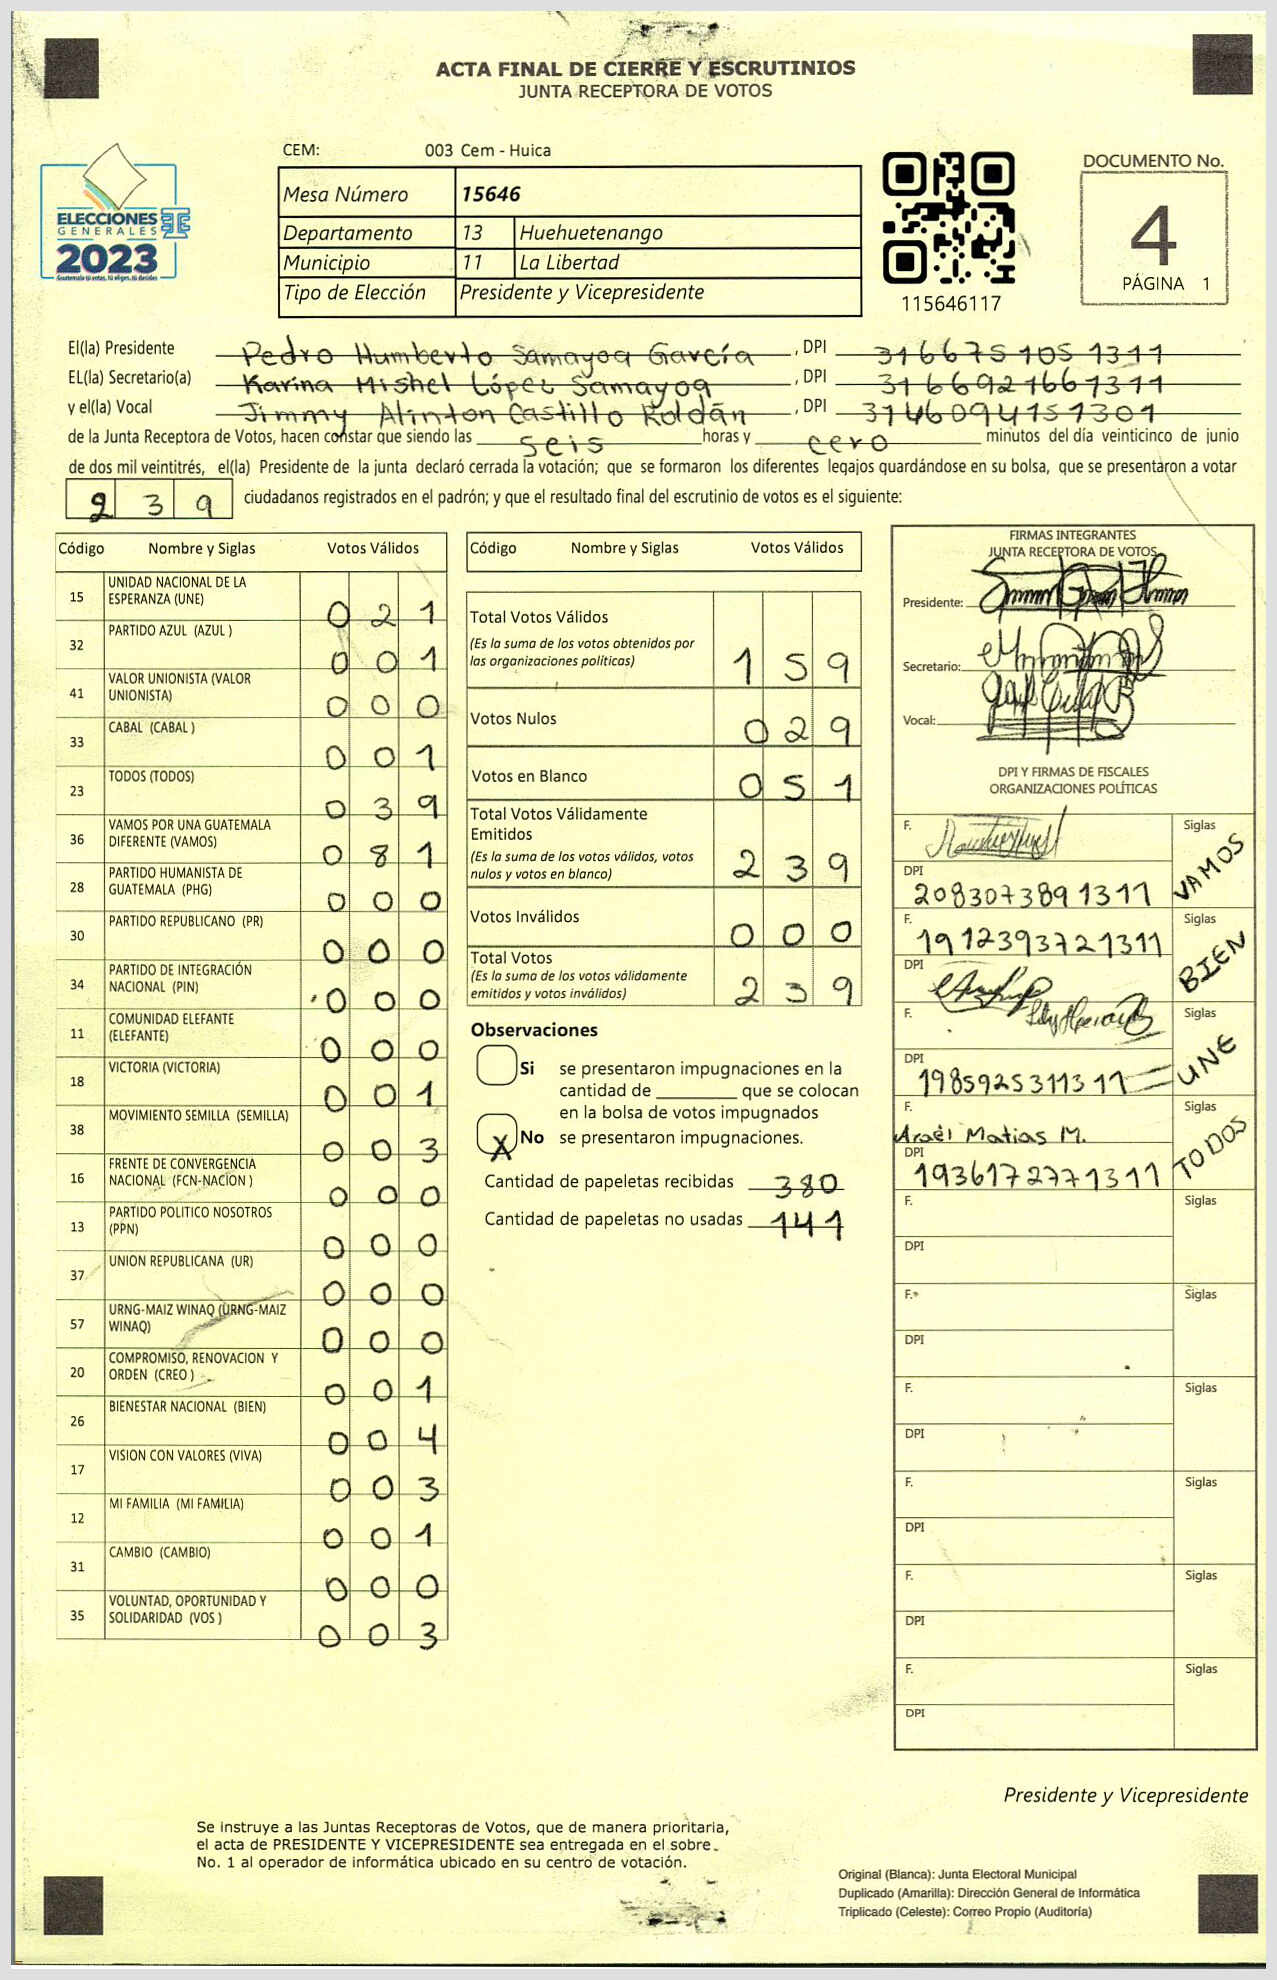 ACTA FINAL DE CIERRE Y ESCRUTINIOS
JUNTA RECEPTORA DE VOTOS
CEM: 003 Cem - Huica
ELECCIONES
GENERALES
2023
Guatemala tú votas, tú eliges, tú decides
Mesa Número 15646
Departamento 13 Huehuetenango
Municipio 11 La Libertad
Tipo de Elección Presidente y Vicepresidente
115646117
DOCUMENTO No.
4
PÁGINA 1
El(la) Presidente Pedro Humberto Samayoa García , DPI 3166751051311
EL(la) Secretario(a) Karina Mishel López Samayoa , DPI 3166921661311
y el(la) Vocal Jimmy Alinton Castillo Roldán , DPI 3146094151301
de la Junta Receptora de Votos, hacen constar que siendo las seis horas y cero minutos del día veinticinco de junio
de dos mil veintitrés, el(la) Presidente de la junta declaró cerrada la votación; que se formaron los diferentes legajos quardándose en su bolsa, que se presentaron a votar
239 ciudadanos registrados en el padrón; y que el resultado final del escrutinio de votos es el siguiente:
Código Nombre y Siglas Votos Válidos
15 UNIDAD NACIONAL DE LA ESPERANZA (UNE) 021
32 PARTIDO AZUL (AZUL ) 001
41 VALOR UNIONISTA (VALOR UNIONISTA) 000
33 CABAL (CABAL ) 001
23 TODOS (TODOS) 039
36 VAMOS POR UNA GUATEMALA DIFERENTE (VAMOS) 081
28 PARTIDO HUMANISTA DE GUATEMALA (PHG) 000
30 PARTIDO REPUBLICANO (PR) 000
34 PARTIDO DE INTEGRACIÓN NACIONAL (PIN) 000
11 COMUNIDAD ELEFANTE (ELEFANTE) 000
18 VICTORIA (VICTORIA) 001
38 MOVIMIENTO SEMILLA (SEMILLA) 003
16 FRENTE DE CONVERGENCIA NACIONAL (FCN-NACION ) 000
13 PARTIDO POLITICO NOSOTROS (PPN) 000
37 UNION REPUBLICANA (UR) 000
57 URNG-MAIZ WINAQ (URNG-MAIZ WINAQ) 000
20 COMPROMISO, RENOVACION Y ORDEN (CREO ) 001
26 BIENESTAR NACIONAL (BIEN) 004
17 VISION CON VALORES (VIVA) 003
12 MI FAMILIA (MI FAMILIA) 001
31 CAMBIO (CAMBIO) 000
35 VOLUNTAD, OPORTUNIDAD Y SOLIDARIDAD (VOS ) 003
Código Nombre y Siglas Votos Válidos
Total Votos Válidos
(Es la suma de los votos obtenidos por
las organizaciones políticas) 159
Votos Nulos 029
Votos en Blanco 051
Total Votos Válidamente
Emitidos
(Es la suma de los votos válidos, votos
nulos y votos en blanco) 239
Votos Inválidos 000
Total Votos
(Es la suma de los votos válidamente
emitidos y votos inválidos) 239
Observaciones
Si se presentaron impugnaciones en la
cantidad de ________ que se colocan
en la bolsa de votos impugnados
X No se presentaron impugnaciones.
Cantidad de papeletas recibidas 380
Cantidad de papeletas no usadas 141
FIRMAS INTEGRANTES
JUNTA RECEPTORA DE VOTOS
Presidente:
Secretario:
Vocal:
DPI Y FIRMAS DE FISCALES
ORGANIZACIONES POLÍTICAS
F. Siglas VAMOS
DPI 2083073891311
F. 1912393721311 Siglas BIEN
DPI
F. Siglas UNE
DPI 1985925311311
F. Araél Matias M. Siglas TODOS
DPI 1936172771311
F. Siglas
DPI
F. Siglas
DPI
F. Siglas
DPI
F. Siglas
DPI
F. Siglas
DPI
F. Siglas
DPI
Presidente y Vicepresidente
Se instruye a las Juntas Receptoras de Votos, que de manera prioritaria,
el acta de PRESIDENTE Y VICEPRESIDENTE sea entregada en el sobre
No. 1 al operador de informática ubicado en su centro de votación.
Original (Blanca): Junta Electoral Municipal
Duplicado (Amarilla): Dirección General de Informática
Triplicado (Celeste): Correo Propio (Auditoría)